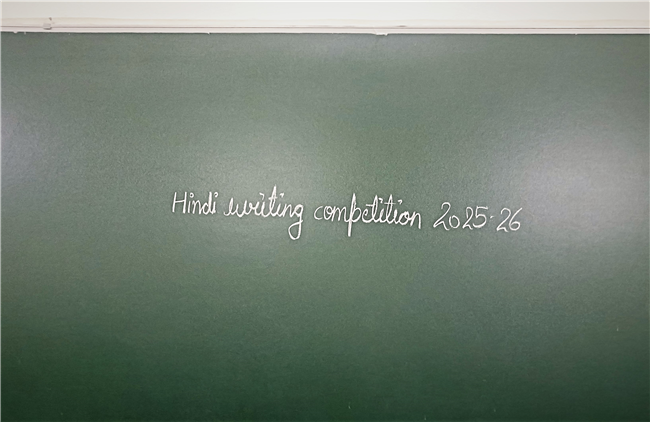 Hindi writing competition 2025-26